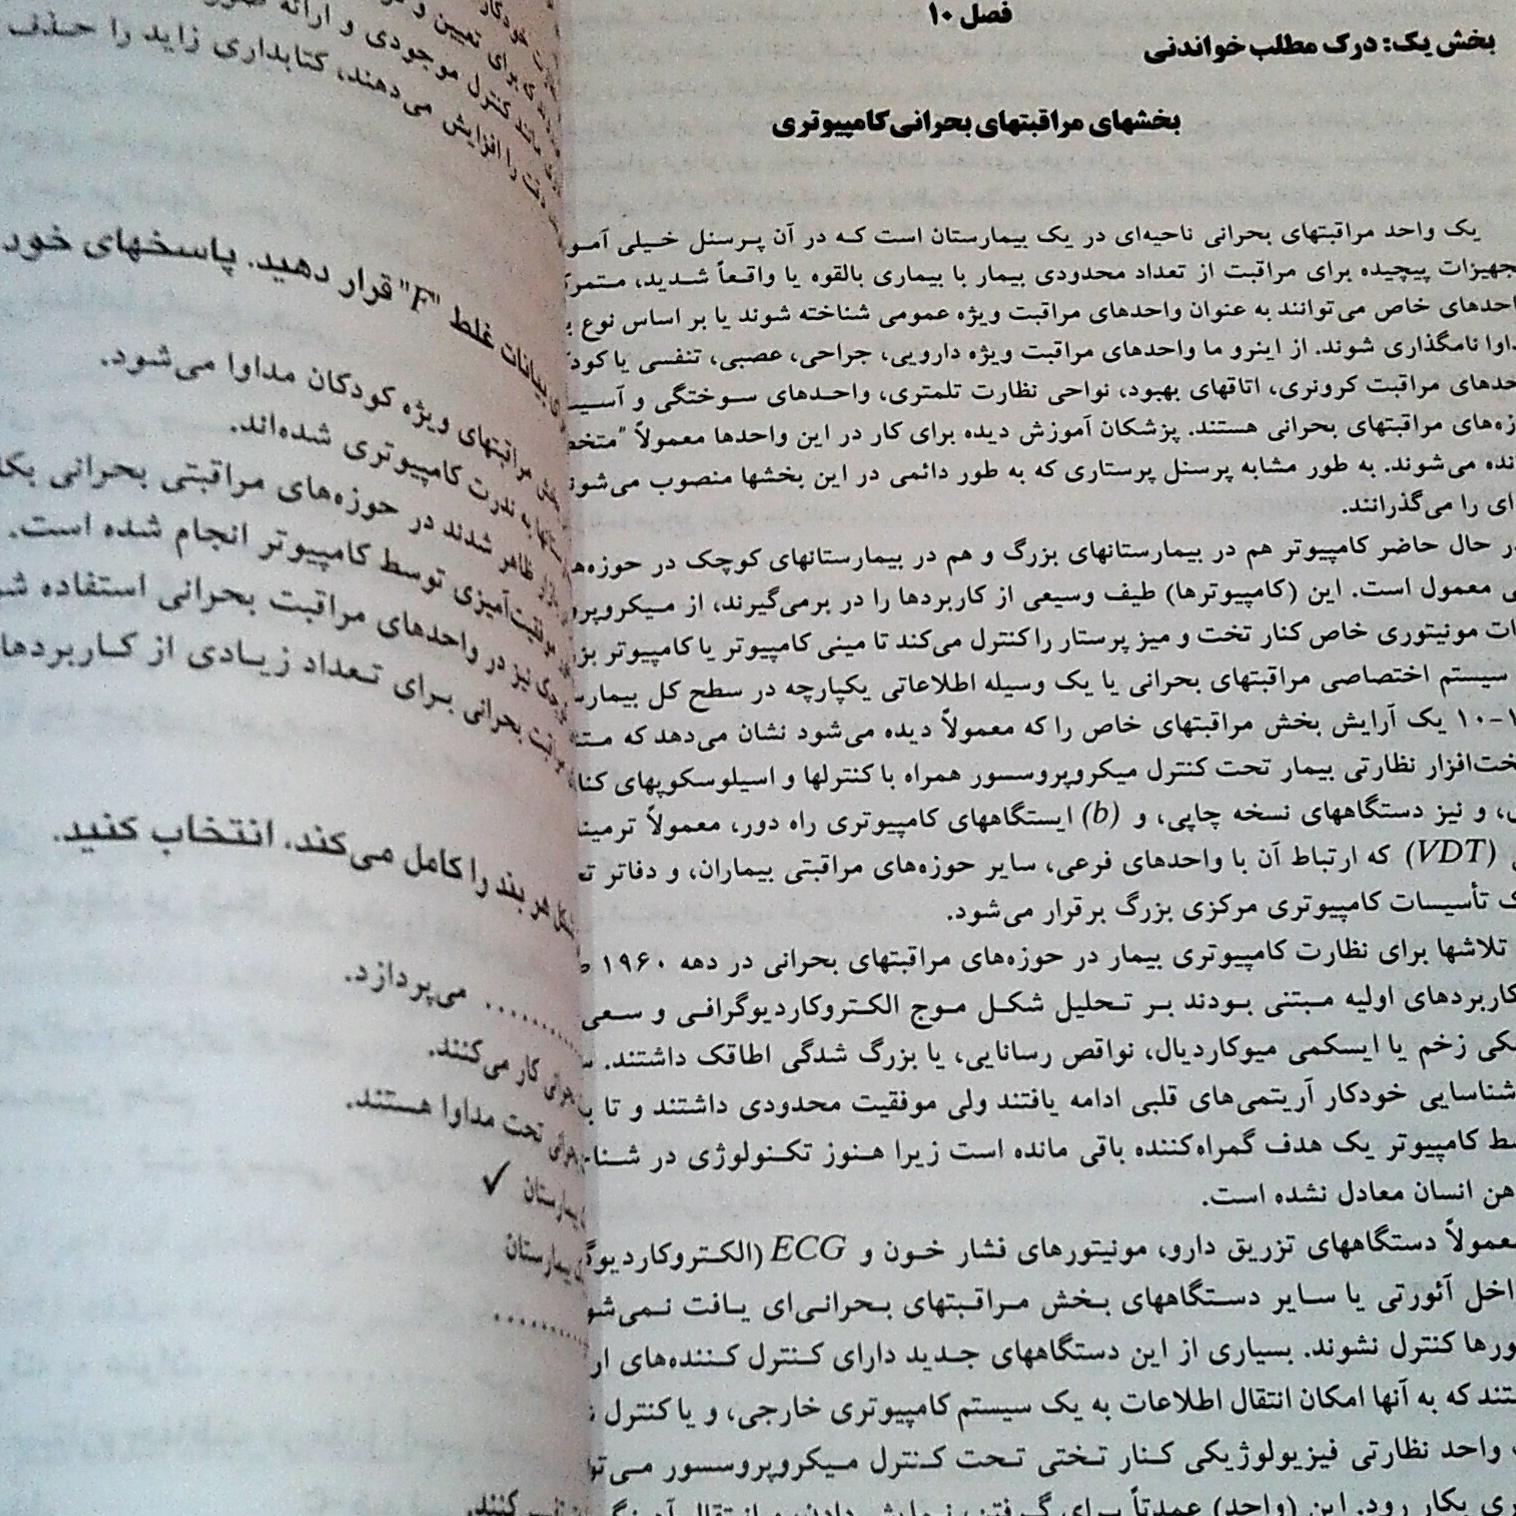 فصل ۱۰
بخش یک: درک مطلب خواندنی
بخشهای مراقبتهای بحرانی کامپیوتری
یک واحد مراقبتهای بحرانی ناحیه‌ای در یک بیمارستان است که در آن پرسنل خیلی
تجهیزات پیچیده برای مراقبت از تعداد محدودی بیمار با بیماری بالقوه یا واقعاً شدید،
احدهای خاص می‌توانند به عنوان واحدهای مراقبت ویژه عمومی شناخته شوند یا بر اساس نوع
نامگذاری شوند. از اینرو ما واحدهای مراقبت ویژه دارویی، جراحی، عصبی، تنفسی یا
حدهای مراقبت کرونری، اتاقهای بهبود، نواحی نظارت تلمتری، واحدهای سوختگی و
زه‌های مراقبتهای بحرانی هستند. پزشکان آموزش دیده برای کار در این واحدها معمولاً "
می‌شوند. به طور مشابه پرسنل پرستاری که به طور دائمی در این بخشها منصوب
ای را می‌گذرانند.
ر حال حاضر کامپیوتر هم در بیمارستانهای بزرگ و هم در بیمارستانهای کوچک در
معمول است. این (کامپیوترها) طیف وسیعی از کاربردها را در برمی‌گیرند، از
ات مونیتوری خاص کنار تخت و میز پرستار را کنترل می‌کند تا مینی کامپیوتر یا کامپیوتر
سیستم اختصاصی مراقبتهای بحرانی یا یک وسیله اطلاعاتی یکپارچه در سطح کل
یک آرایش بخش مراقبتهای خاص را که معمولاً دیده می‌شود نشان می‌دهد که
خت‌افزار نظارتی بیمار تحت کنترل میکروپروسسور همراه با کنترلها و اسیلوسکوپهای
و نیز دستگاههای نسخه چاپی، و (b) ایستگاههای کامپیوتری راه دور، معمولاً
(VDT) که ارتباط آن با واحدهای فرعی، سایر حوزه‌های مراقبتی بیماران، و دفاتر
ک تأسیسات کامپیوتری مرکزی بزرگ برقرار می‌شود.
تلاشها برای نظارت کامپیوتری بیمار در حوزه‌های مراقبتهای بحرانی در دهه ۱۹۶۰
کاربردهای اولیه مبتنی بودند بر تحلیل شکل موج الکتروکاردیوگرافی و سعی
زخم یا ایسکمی میوکاردیال، نواقص رسانایی، یا بزرگ شدگی اطاقک داشتند.
شناسایی خودکار آریتمی‌های قلبی ادامه یافتند ولی موفقیت محدودی داشتند و تا
سط کامپیوتر یک هدف گمراه‌کننده باقی مانده است زیرا هنوز تکنولوژی در
هن انسان معادل نشده است.
عمولاً دستگاههای تزریق دارو، مونیتورهای فشار خون و ECG
اخل آئورتی یا سایر دستگاههای بخش مراقبتهای بحرانی‌ای یافت
ورها کنترل نشوند. بسیاری از این دستگاههای جدید دارای کنترل کننده‌های
تند که به آنها امکان انتقال اطلاعات به یک سیستم کامپیوتری خارجی، و یا کنترل
واحد نظارتی فیزیولوژیکی کنار تختی تحت کنترل میکروپروسسور
ری بکار رود. این (واحد) عمدتاً برای گرفتن، نمایش دادن، و انتقال
که برای تعیین و
مانند کنترل موجودی و ارائه
دقت را افزایش می‌دهند، کتابداری زاید را حذف
بیانات غلط "F" قرار دهید. پاسخهای خود
مراقبتهای ویژه کودکان مداوا می‌شود.
به ندرت کامپیوتری شده‌اند.
ظاهر شدند در حوزه‌های مراقبتی بحرانی
موفقیت‌آمیزی توسط کامپیوتر انجام شده است.
نیز در واحدهای مراقبت بحرانی استفاده
بحرانی برای تعداد زیادی از کاربردها
هر بند را کامل می‌کند، انتخاب کنید.
.......... می‌پردازد.
کار می‌کنند.
تحت مداوا هستند.
بیمارستان ✓
بیمارستان
..........
کنند.